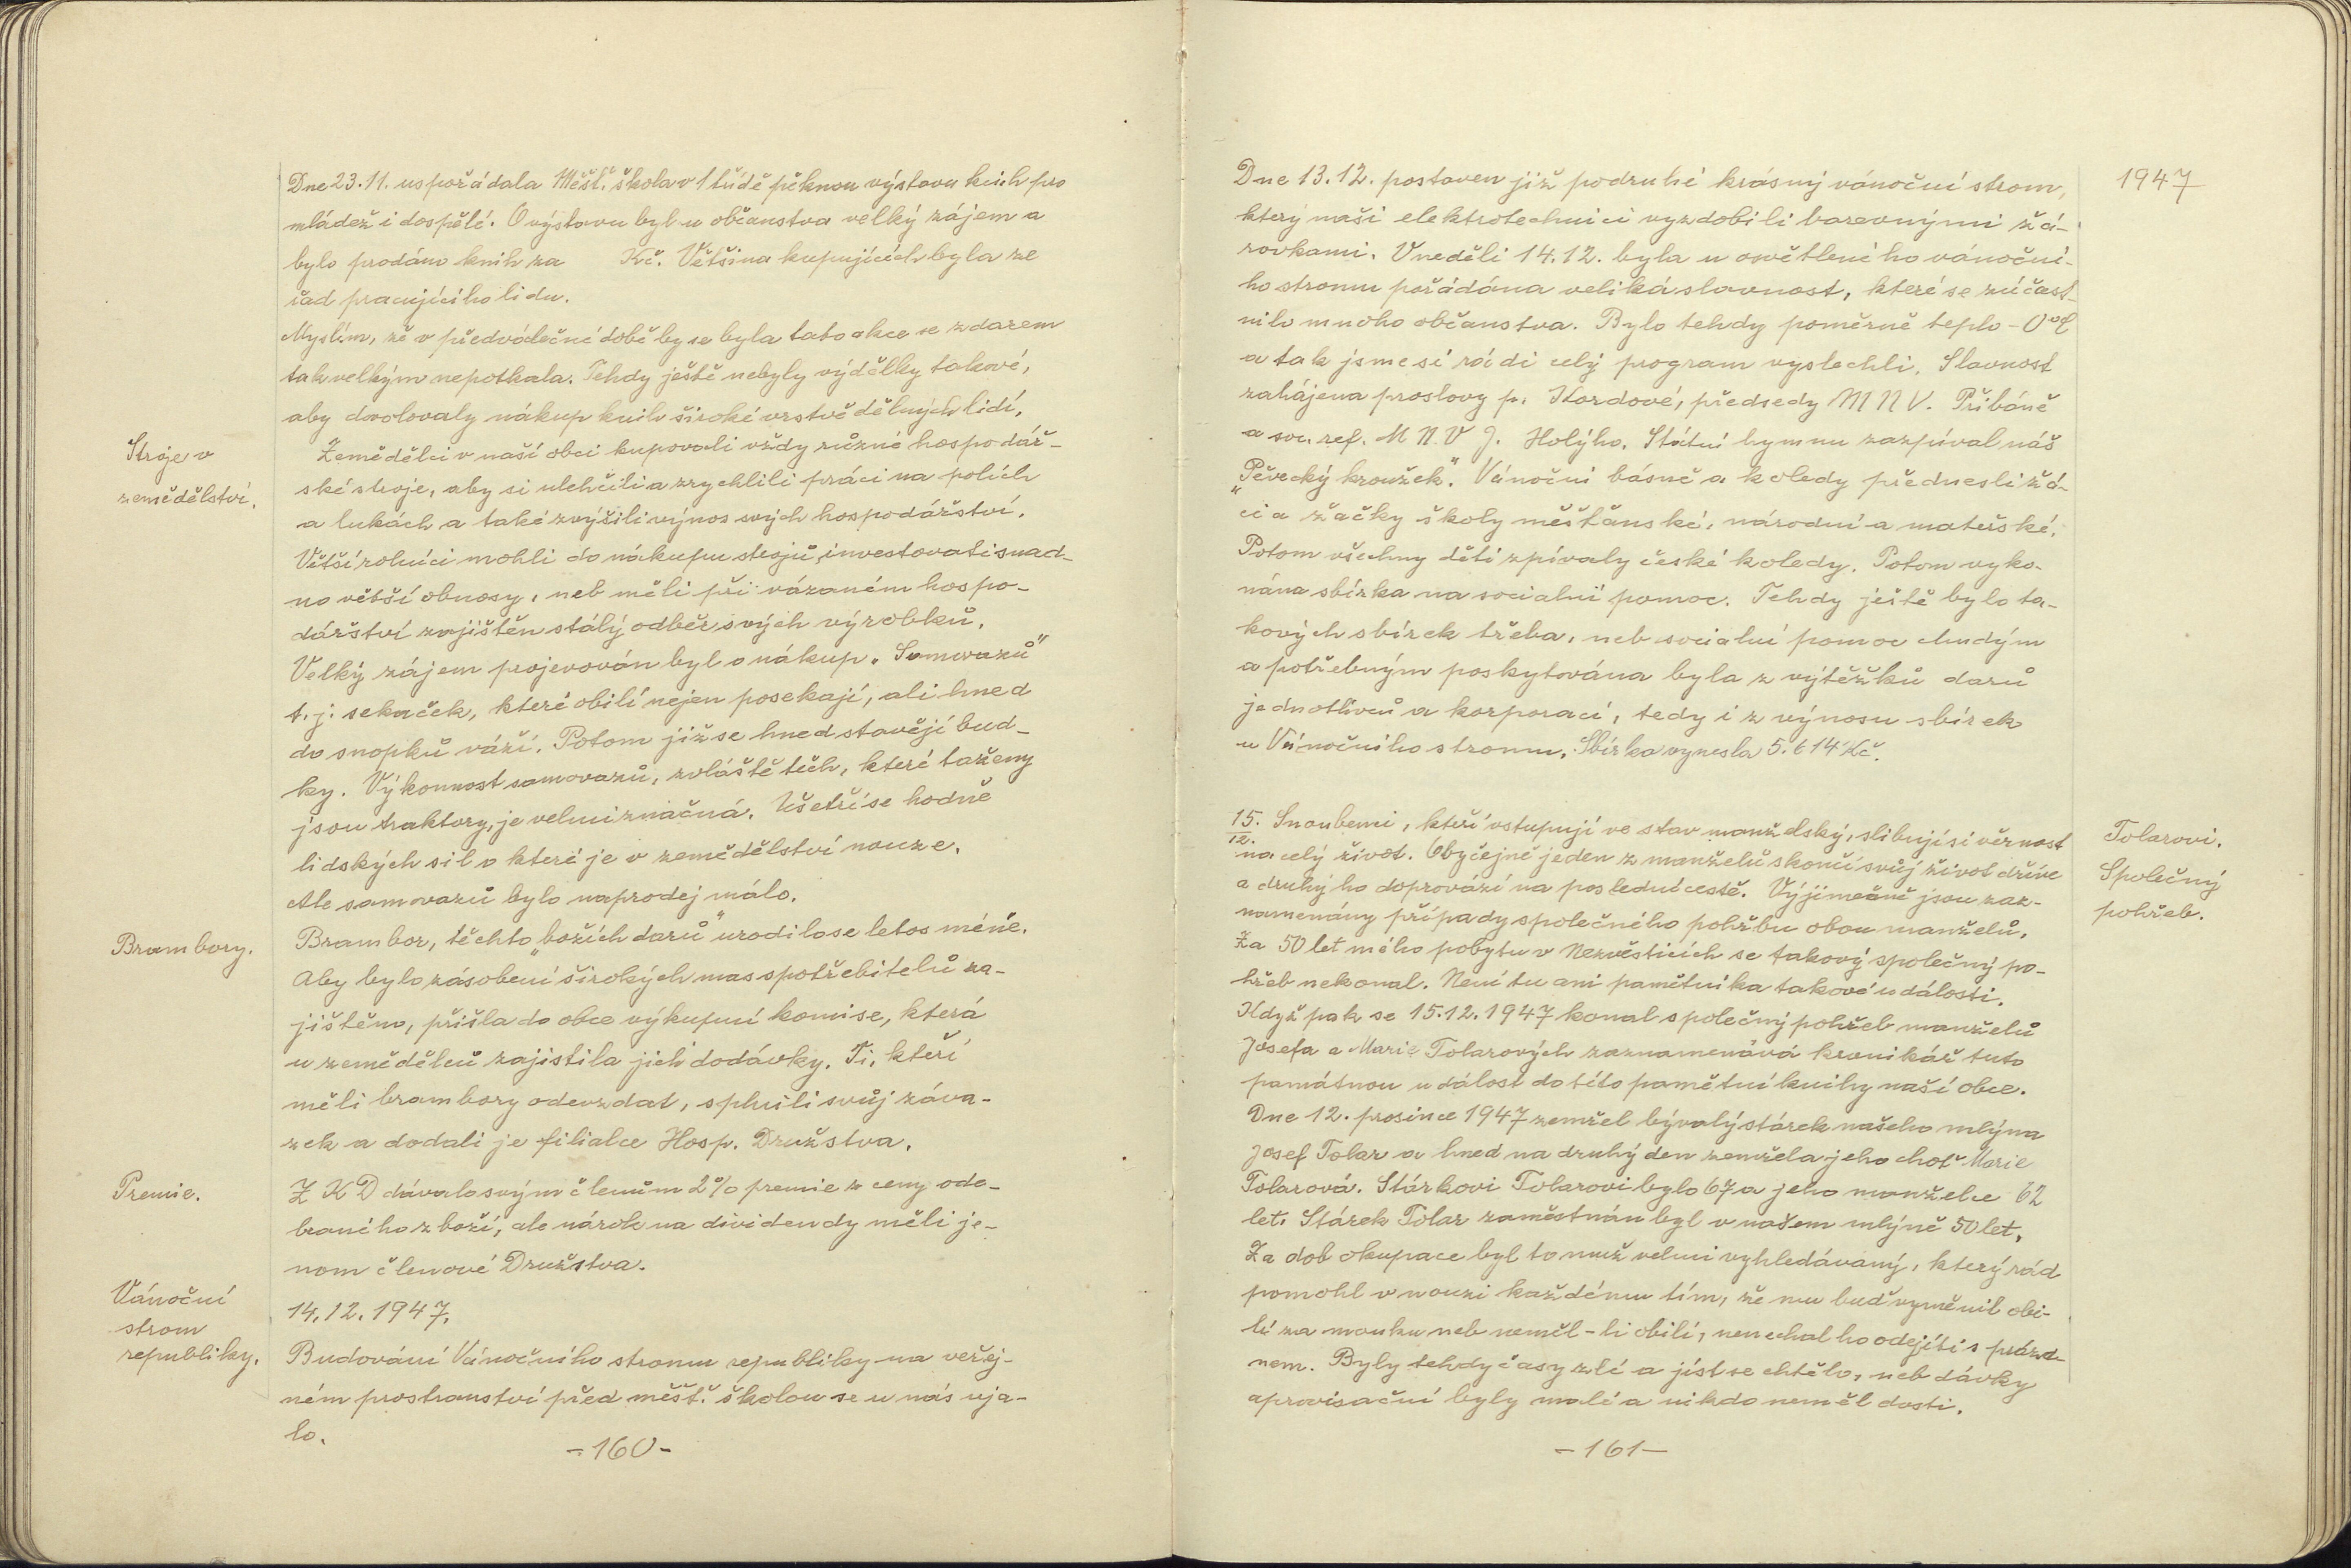 Dne 23.11. uspořádala Měšť. škola v 1 třídě pěknou výstavu knih pro
mládež i dospělé. O výstavu byl u občanstva velký zájem a
bylo prodáno knih za Kč. Většina kupujících byla ze
řad pracujícího lidu.
Myslím, že v předválečné době by se byla tato akce se zdarem
tak velkým nepotkala. Tehdy ještě nebyly výdělky takové,
aby dovolovaly nákup knih široké vrstvě dělných lidí.
Stroje v
zemědělství.
Zemědělci v naší obci kupovali vždy různé hospodář-
ské stroje, aby si ulehčili a zrychlili práci na polích
a lukách a také zvýšili výnos svých hospodářství.
Větší rolníci mohli do nákupu strojů investovati snad-
no větší obnosy, neb měli při vázaném hospo-
dářství zajištěn stálý odběr svých výrobků.
Velký zájem projevován byl o nákup „Samovazů"
t. j. sekaček, které obilí nejen posekají, ali hned
do snopků váží. Potom již se hned stavějí bud-
ky. Výkonnost samovazů, zvláště těch, které taženy
jsou traktory, je velmi značná. Ušetří se hodně
lidských sil o které je v zemědělství nouze.
Ale samovazů bylo naprodej málo.
Brambory.
Brambor, těchto „božích darů" urodilo se letos méně.
Aby bylo zásobení širokých mas spotřebitelů za-
jištěno, přišla do obce výkupní komise, která
u zemědělců zajistila jich dodávky. Ti, kteří
měli brambory odevzdat, splnili svůj záva-
zek a dodali je filialce Hosp. Družstva.
Premie.
Z K D dávalo svým členům 2% premie z ceny ode-
braného zboží, ale nárok na dividendy měli je-
nom členové Družstva.
Vánoční
strom
republiky.
14.12.1947.
Budování Vánočního stromu republiky na veřej-
ném prostranství před měšť. školou se u nás uja-
lo.
-160-
1947
Dne 13.12. postaven již podruhé krásný vánoční strom,
který naši elektrotechnici vyzdobili barevnými žá-
rovkami. V neděli 14.12. byla u osvětleného vánoční-
ho stromu pořádána veliká slavnost, které se zúčast-
nilo mnoho občanstva. Bylo tehdy poměrně teplo - 0°C
a tak jsme si rádi celý program vyslechli. Slavnost
zahájena proslovy p. Kordové, předsedy M N V. Přibáně
a soc. ref. M N. V J. Holýho. Státní hymnu zazpíval náš
„Pěvecký kroužek". Vánoční básně a koledy přednesli žá-
ci a žačky školy měšťanské, národní a mateřské.
Potom všechny děti zpívaly české koledy. Potom vyko-
nána sbírka na socialní pomoc. Tehdy ještě bylo ta-
kových sbírek třeba, neb socialní pomoc chudým
a potřebným poskytována byla z výtěžků darů
jednotlivců a korporací, tedy i z výnosu sbírek
u Vánočního stromu. Sbírka vynesla 5.614 Kč.
Tolarovi.
Společný
pohřeb.
15./12. Snoubenci, kteří vstupují ve stav manželský, slibují si věrnost
na celý život. Obyčejně jeden z manželů skončí svůj život dříve
a druhý ho doprovází na poslední cestě. Výjimečně jsou zaz-
namenány případy společného pohřbu obou manželů.
Za 50 let mého pobytu v Nezvěsticích se takový společný po-
hřeb nekonal. Není tu ani pamětníka takové události.
Když pak se 15.12.1947 konal společný pohřeb manželů
Josefa a Marie Tolarových zaznamenává kronikář tuto
památnou událost do této pamětní knihy naší obce.
Dne 12. prosince 1947 zemřel bývalý stárek našeho mlýna
Josef Tolar a hned na druhý den zemřela jeho choť Marie
Tolarová. Stárkovi Tolarovi bylo 67 a jeho manželce 62
let. Stárek Tolar zaměstnán byl v našem mlýně 50 let.
Za dob okupace byl to muž velmi vyhledávaný, který rád
pomohl v nouzi každému tím, že mu buď vyměnil obi-
lí za mouku neb neměl-li obilí, nenechal ho odejíti s prázd-
nem. Byly tehdy časy zlé a jíst se chtělo, neb dávky
aprovisační byly malé a nikdo neměl dosti.
-161-